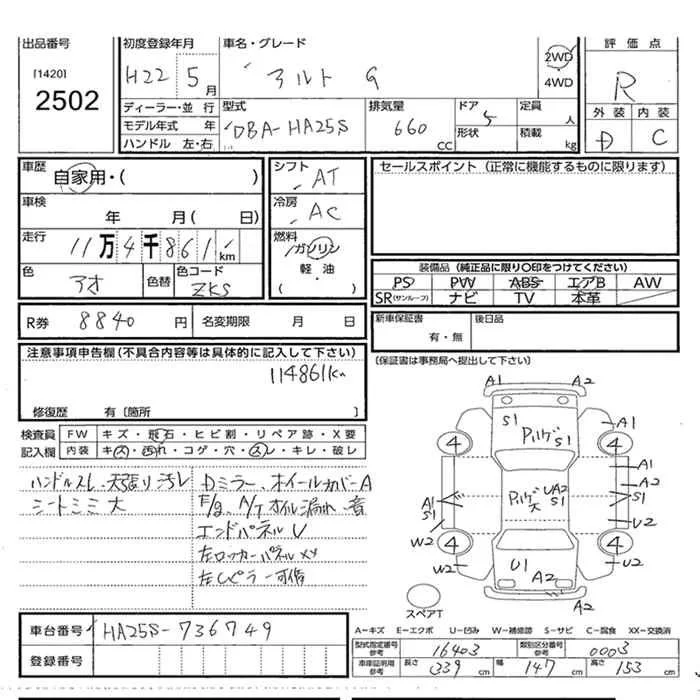 出品番号 初度登録年月 車名・グレード 評価点
[1420] 2502 H22 5月 アルト G 2WD 4WD R
外装 内装
D C
ディーラー・並行 型式 排気量 ドア 定員 人
モデル年式 年 DBA-HA25S 660 CC 5 形状 積載 kg
ハンドル 左・右
車歴 自家用・( ) シフト AT セールスポイント (正常に機能するものに限ります)
車検 年 月( 日) 冷房 AC
走行 11万4千861 km 燃料 ガソリン 軽油 ( )
色 アオ 色替 色コード ZKS
装備品 (純正品に限り○印をつけてください)
PS PW ABS エアB AW
SR(サンルーフ) ナビ TV 本革
R券 8840円 名変期限 月 日
新車保証書 有・無 後日品
(保証書は事務局へ提出して下さい)
注意事項申告欄(不具合内容等は具体的に記入して下さい)
114861km
修復歴 有〔箇所
検査員 FW キズ・飛石・ヒビ割・リペア跡・X要
記入欄 内装 キズ・汚れ・コゲ・穴・スレ・キレ・破レ
ハンドルスレ、天張り汚レ
シートシミ大
Dミラー、ホイールカバーA
F/g、A/Tオイル漏れ、音
エンドパネルU
左ロッカーパネルXX
左Cピラー
A1 A2
S1 S1 A1
4 4
A1 A2
A1 S1 UA2 S1 S1
W2 U2
4 4
W2 U1 A2 U2
A2
スペアT
車台番号 HA25S-736749
登録番号
A-キズ E-エクボ U-凹み W-補修跡 S-サビ C-腐食 XX-交換済
型式指定番号 参考 16403 類別区分番号 参考 0003
車庫証明用 参考 長さ 339 cm 幅 147 cm 高さ 153 cm